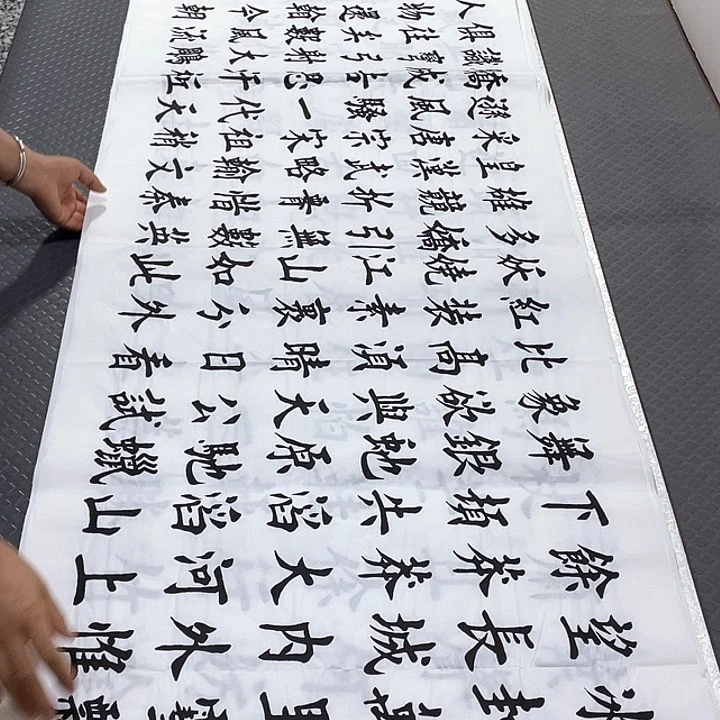 冰封萬里雪飄
望長城內外惟
餘莽莽大河上
下頓失滔滔山
舞銀虵原馳蠟
象欲與天公試
比高須晴日看
紅裝素裹分外
妖嬈江山如此
多嬌引無數英
雄競折腰惜秦
皇漢武略輸文
采唐宗宋祖稍
遜風騷一代天
驕成吉思汗衹
識彎弓射大鵰
俱往矣數風流
人物還今朝